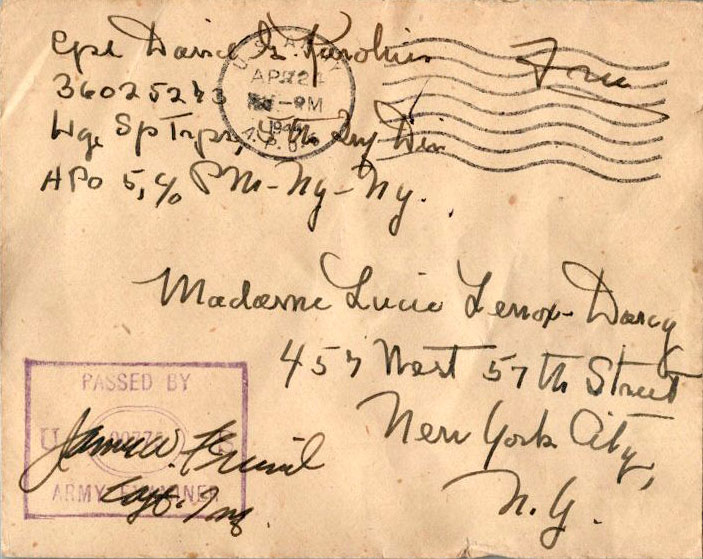 Cpl David G. Free
36025273
Hqs Sp Trps, 5 th Inf Div
APO 5, c/o PM - Ny - Ny.
U.S. ARMY
APR 24
PM
194
A.P.O.
Madame Lucie Lenox-Darcy
457 West 57 th Street
New York City,
N.Y.
PASSED BY
U S
ARMY EXAMINER
James W.
Capt. Inf